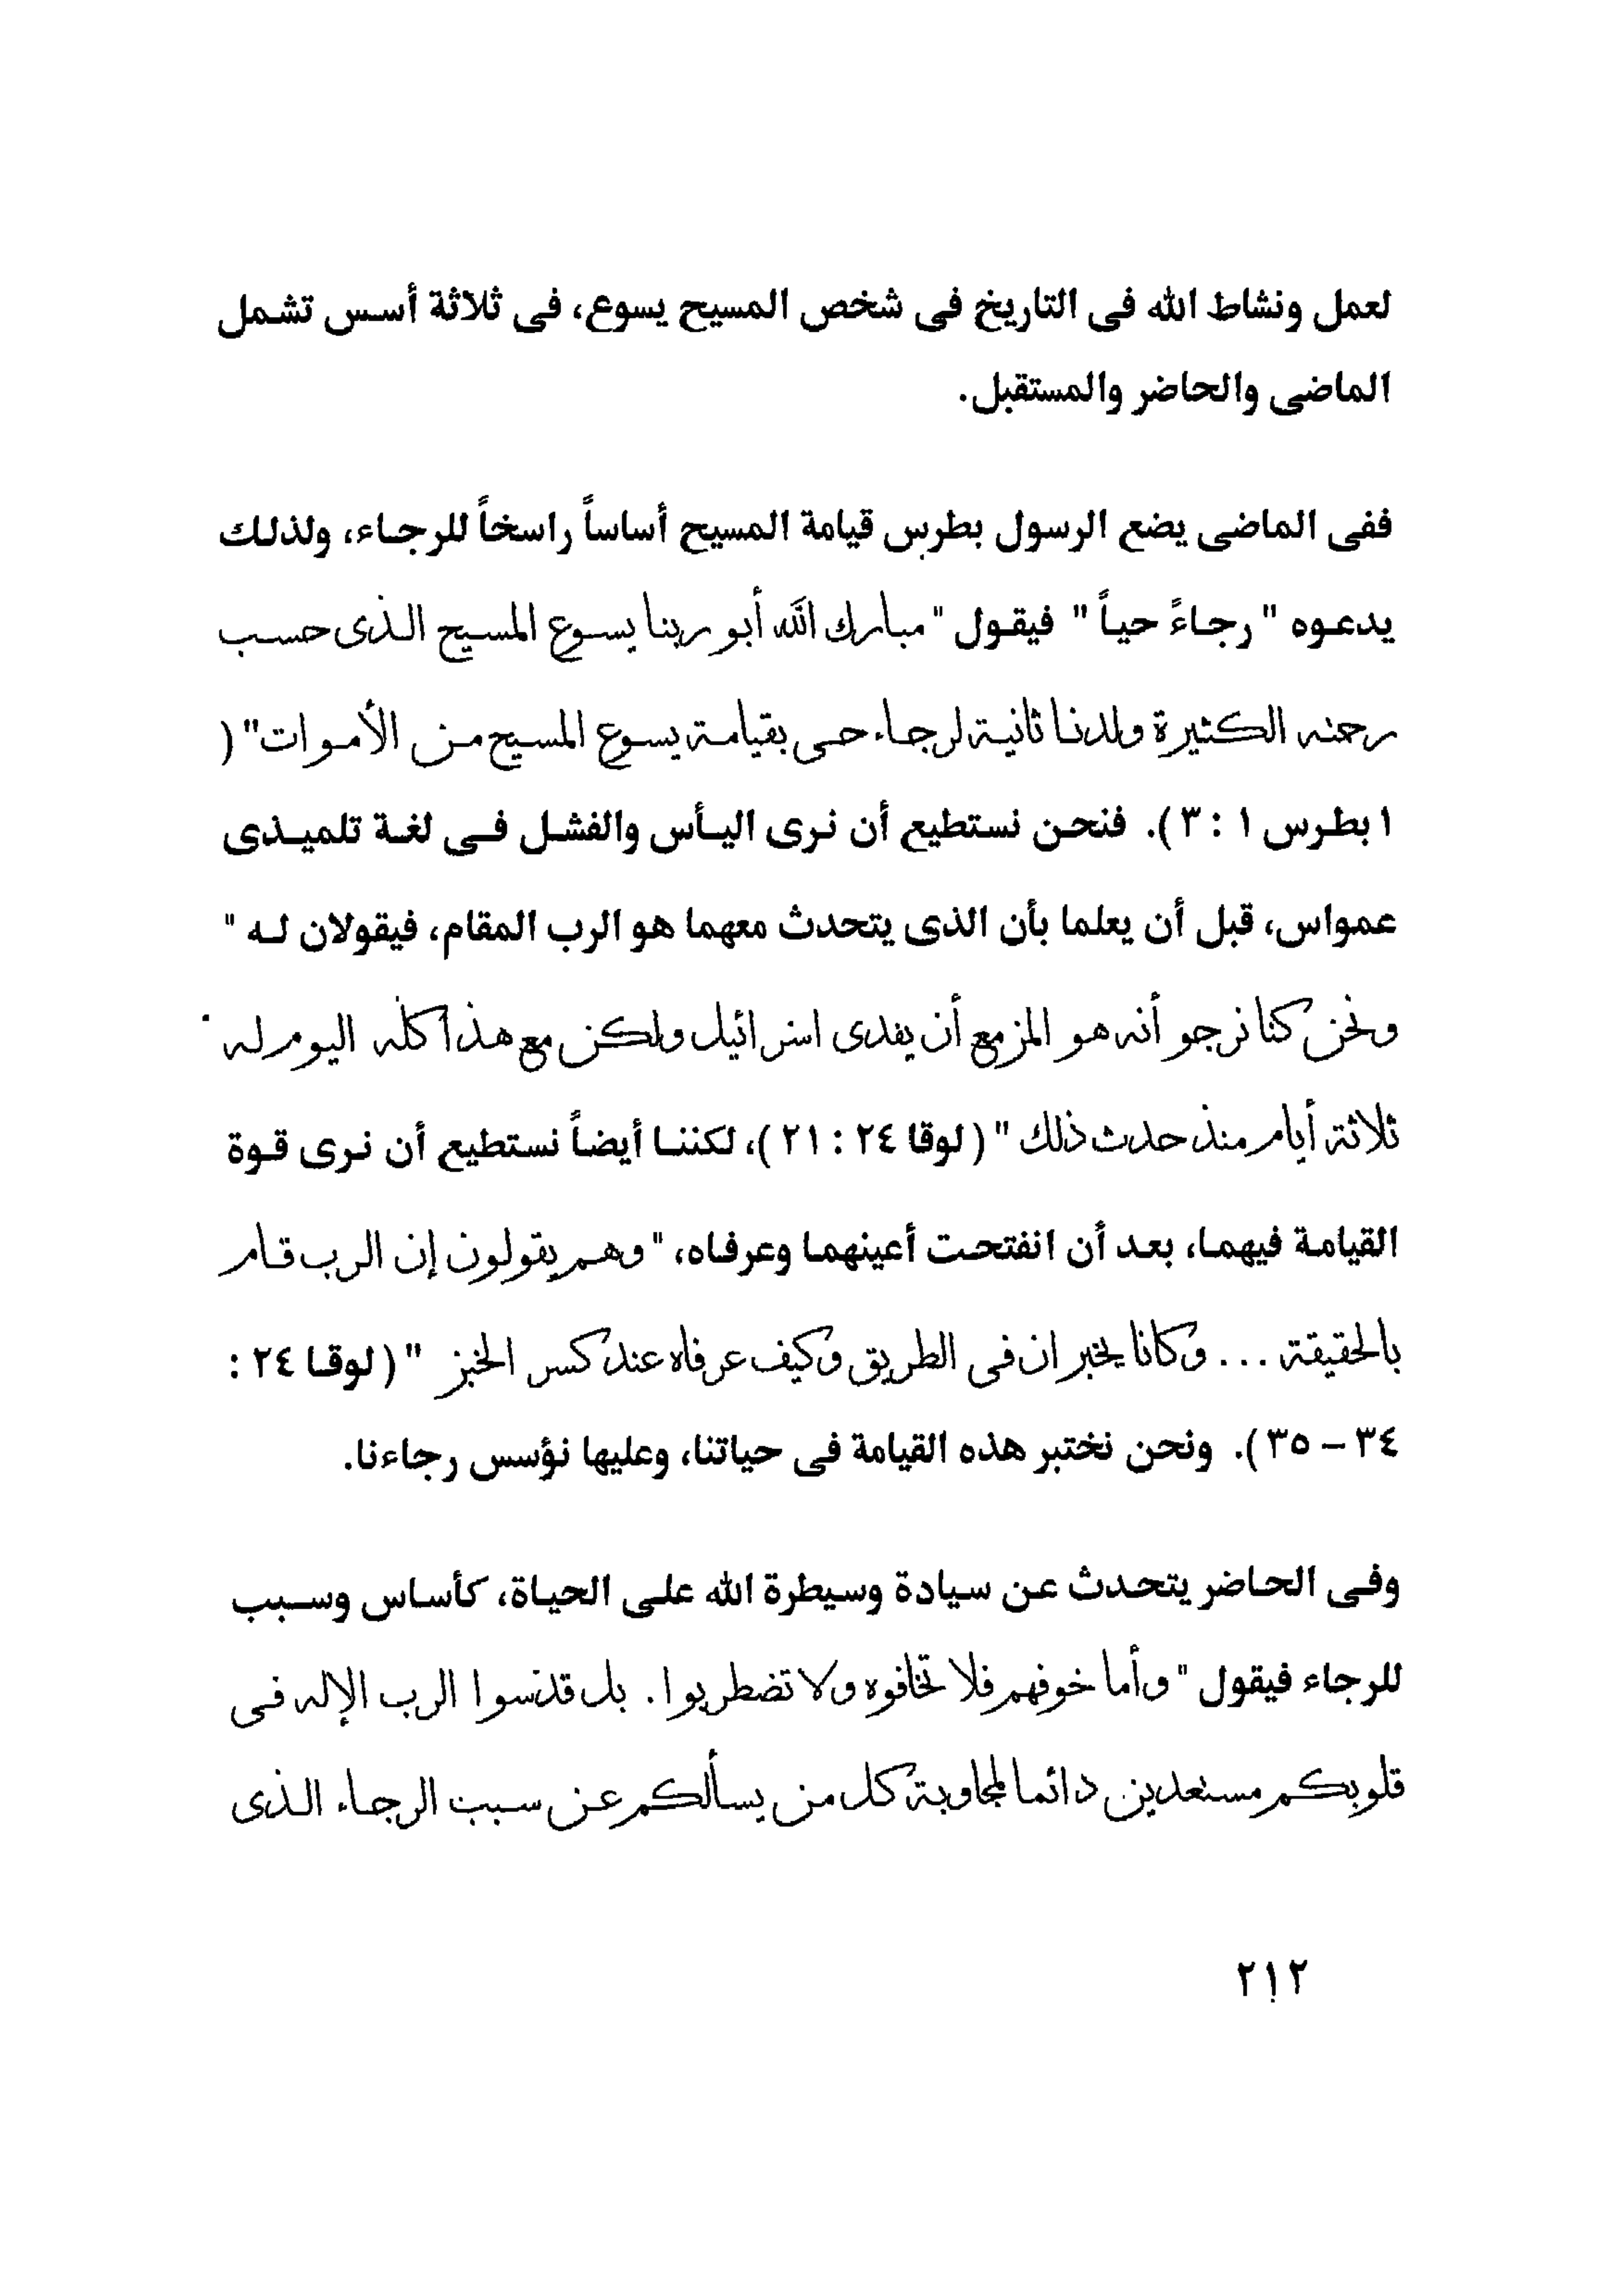 لعمل ونشاط الله فى التاريخ فى شخص المسيح يسوع، فى ثلاثة أسس تشمل
الماضى والحاضر والمستقبل.
ففى الماضى يضع الرسول بطرس قيامة المسيح أساساً راسخاً للرجاء، ولذلك
يدعوه " رجاءً حياً " فيقول " مبارك الله أبو ربنا يسوع المسيح الذى حسب
رحمته الكثيرة ولدنا ثانية لرجاء حى بقيامة يسوع المسيح من الأموات" (
١ بطرس ١ : ٣ ). فنحن نستطيع أن نرى اليأس والفشل فى لغة تلميذى
عمواس، قبل أن يعلما بأن الذى يتحدث معهما هو الرب المقام، فيقولان له "
ونحن كنا نرجو أنه هو المزمع أن يفدى اسرائيل ولكن مع هذا كله اليوم له
ثلاثة أيام منذ حدث ذلك " ( لوقا ٢٤ : ٢١ )، لكننا أيضاً نستطيع أن نرى قوة
القيامة فيهما، بعد أن انفتحت أعينهما وعرفاه، " وهم يقولون إن الرب قام
بالحقيقة ... وكانا يخبران فى الطريق وكيف عرفاه عند كسر الخبز " ( لوقا ٢٤ :
٣٤ – ٣٥ ). ونحن نختبر هذه القيامة فى حياتنا، وعليها نؤسس رجاءنا.
وفى الحاضر يتحدث عن سيادة وسيطرة الله على الحياة، كأساس وسبب
للرجاء فيقول " وأما خوفهم فلا تخافوه ولا تضطربوا. بل قدسوا الرب الإله فى
قلوبكم مستعدين دائما لمجاوبة كل من يسألكم عن سبب الرجاء الذى
٢١٢